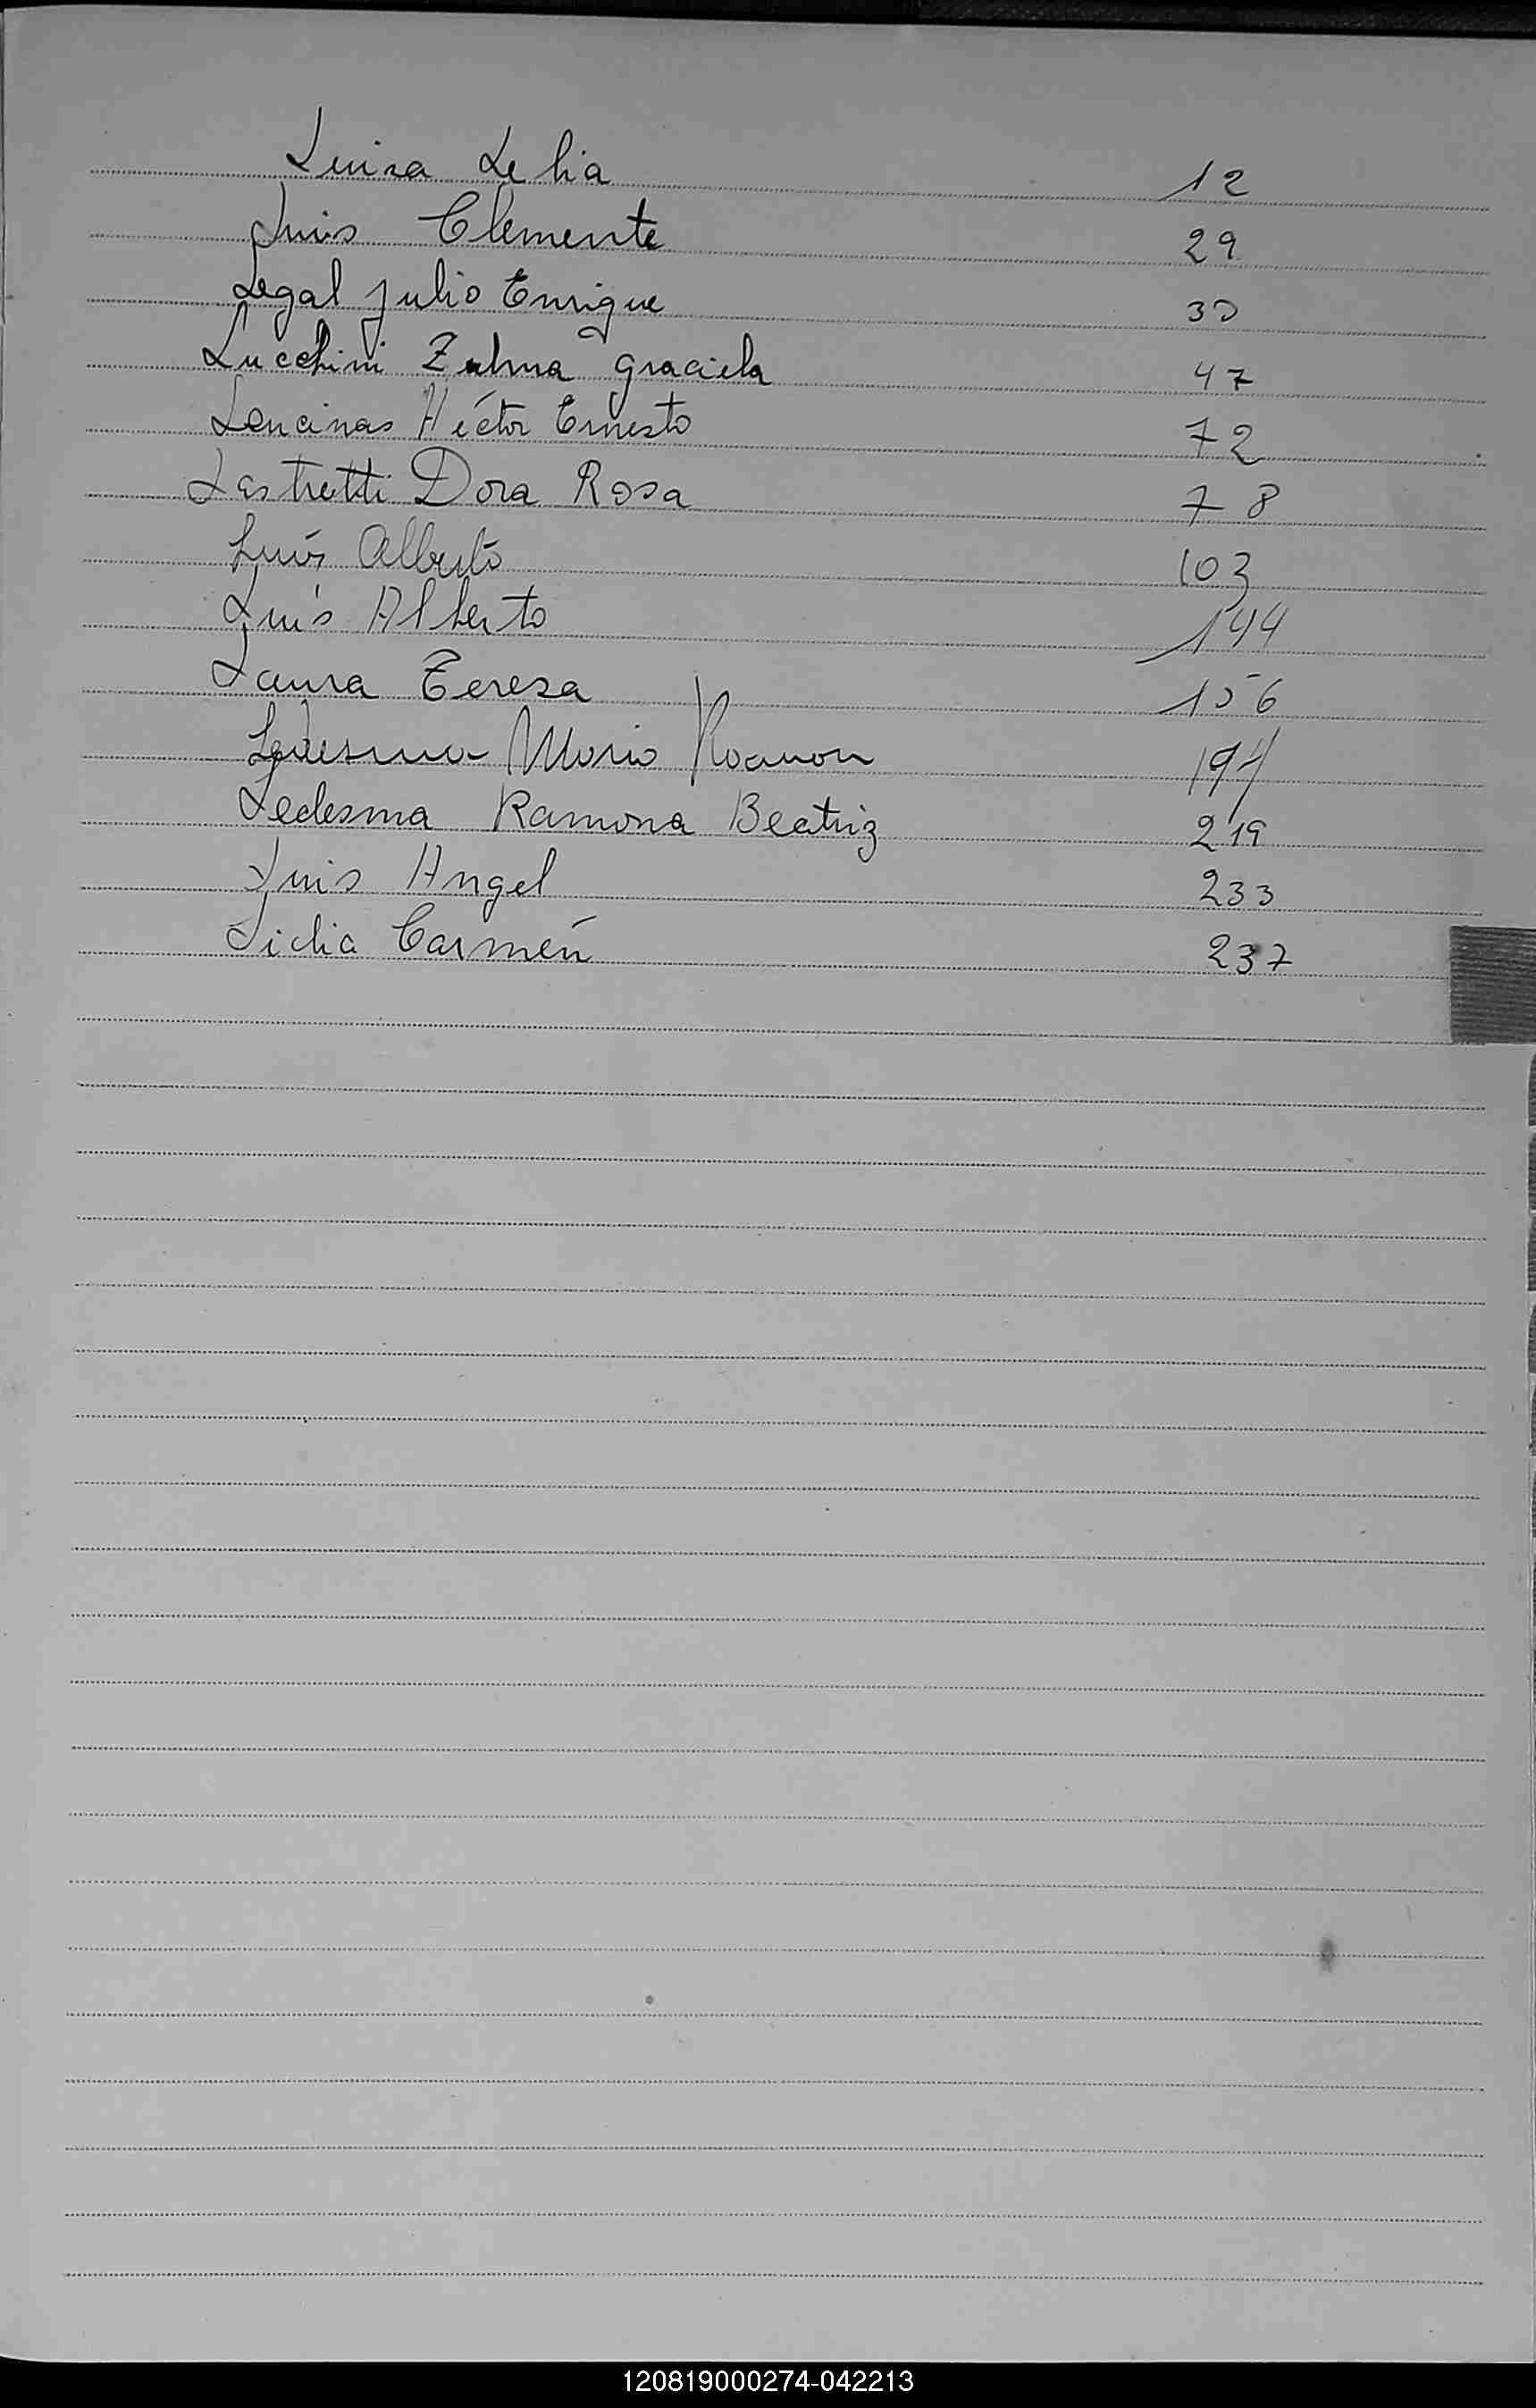 Luisa Lelia 12
Luis Clemente 29
Legal Julio Enrique 30
Lucchini Zulma Graciela 47
Lencinas Héctor Ernesto 72
Lastretti Dora Rosa 78
Luis Alberto 103
Luis Alberto 144
Laura Teresa 156
Ledesma Mario Ramon 194
Ledesma Ramona Beatriz 219
Luis Angel 233
Lidia Carmén 237
120819000274-042213